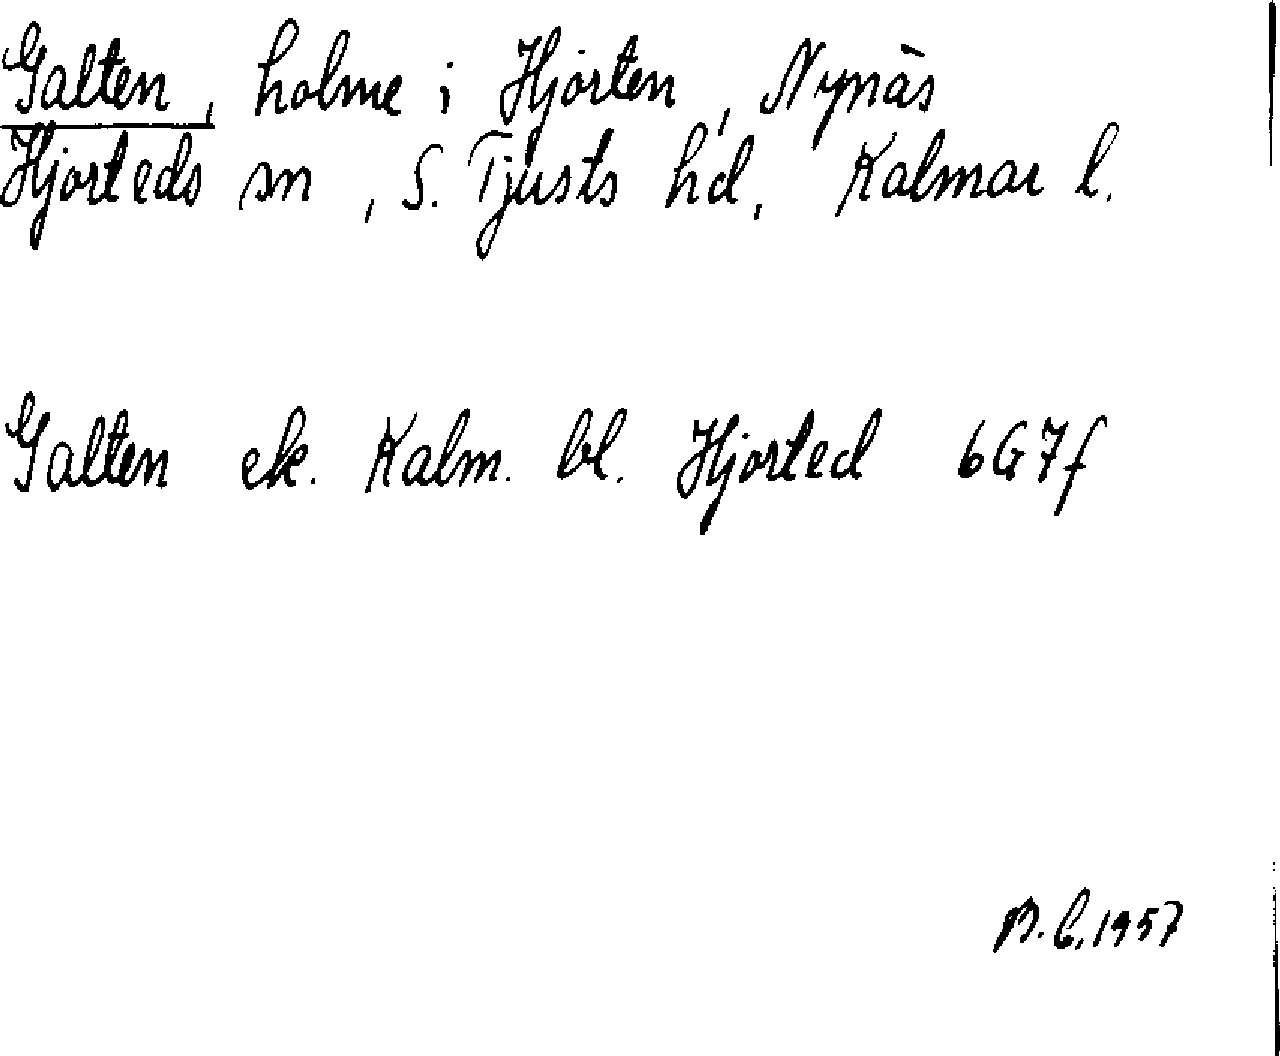 Galten, holme i Hjorten, Nynäs
Hjorteds sn, S. Tjusts hd, Kalmar l.
Galten ek. Kalm. bl. Hjorted 6G7f
1957